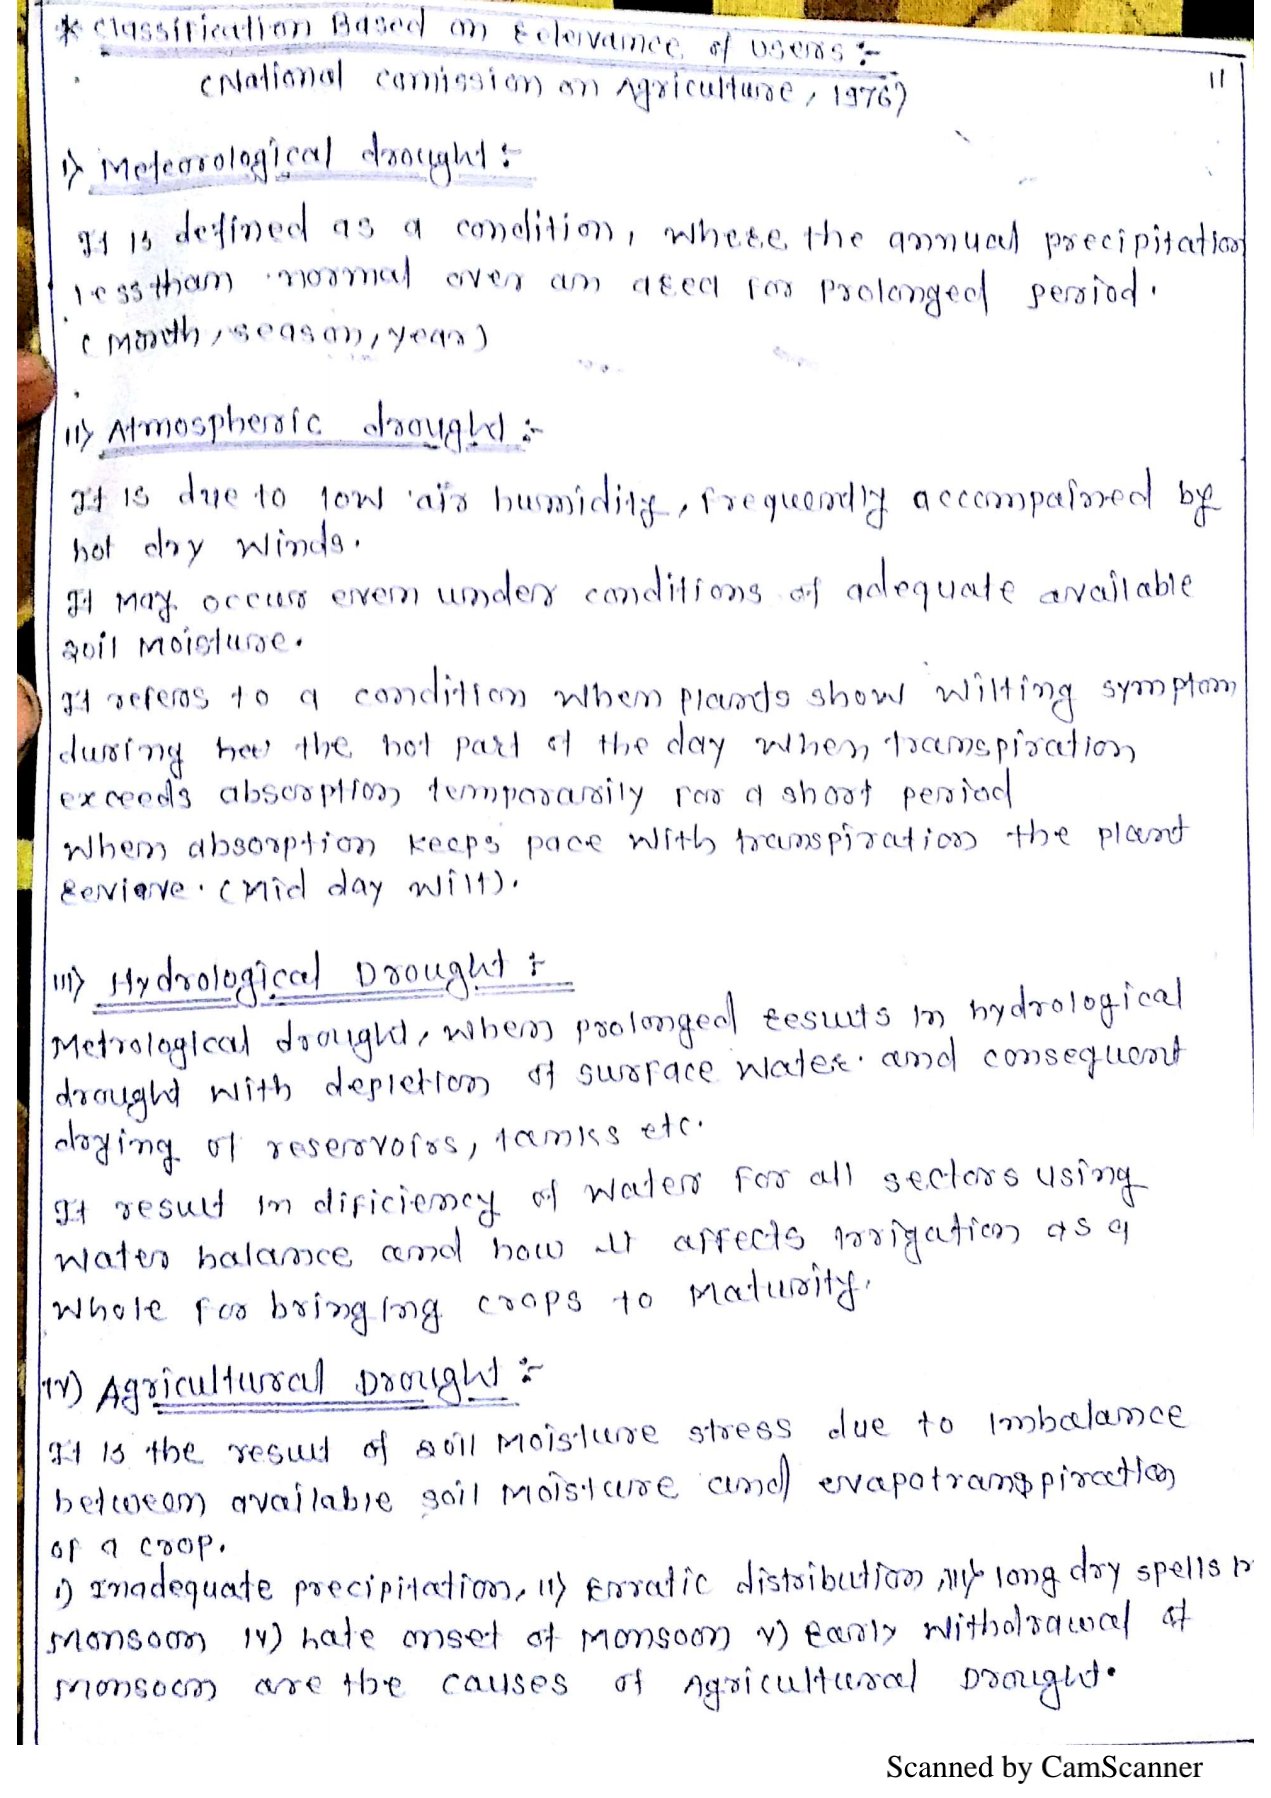 * Classification Based on Relervance of users :-
(National comission on Agriculture, 1976)
11
i) Meteorological drought :-
It is defined as a condition, where the annual precipitation
less than normal over an area for prolonged period.
(Month, season, year)
ii) Atmospheric drought :-
It is due to low air humidity, frequently accompained by
hot dry winds.
It may occur even under conditions of adequate available
soil moisture.
It refers to a condition when plants show wilting symptom
during the hot part of the day when transpiration
exceeds absorption temporarily for a short period
when absorption keeps pace with transpiration the plant
revive. (Mid day wilt).
iii) Hydrological Drought :-
Metrological drought, when prolonged results in hydrological
drought with depletion of surface water. and consequent
drying of reservoirs, tanks etc.
It result in dificiency of water for all sectors using
water balance and how it affects irrigation as a
whole for bringing crops to maturity.
iv) Agricultural Drought :-
It is the result of soil moisture stress due to imbalance
between available soil moisture and evapotranspiration
of a crop.
i) Inadequate precipitation, ii) Erratic distribution, iii) long dry spells in
monsoon iv) late onset of monsoon v) Early withdrawal of
monsoon are the causes of Agricultural Drought.
Scanned by CamScanner